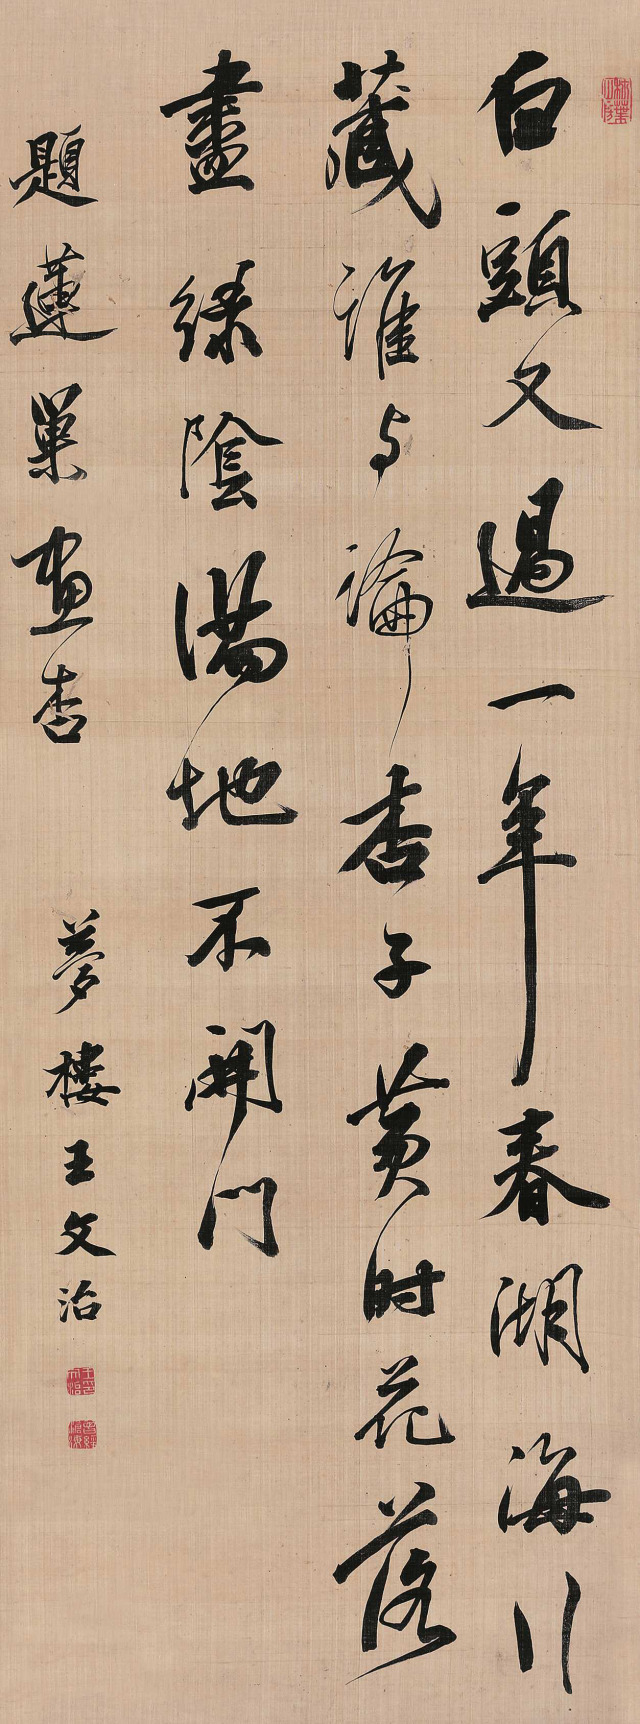 白頭又過一年春湖海行
藏誰与論杏子黄时花落
盡綠陰滿地不開門
題蓮巢畫杏
夢樓王文治